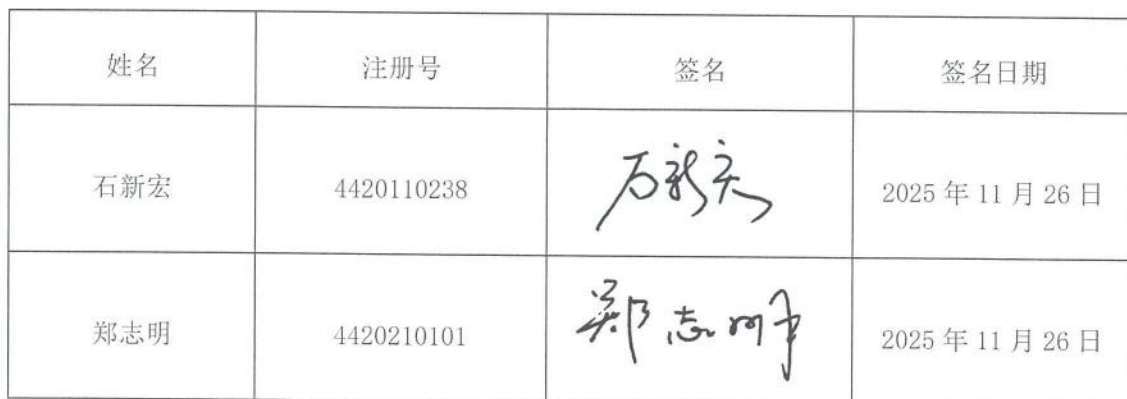 姓名 注册号 签名 签名日期
石新宏 4420110238 石新宏 2025年11月26日
郑志明 4420210101 郑志明 2025年11月26日